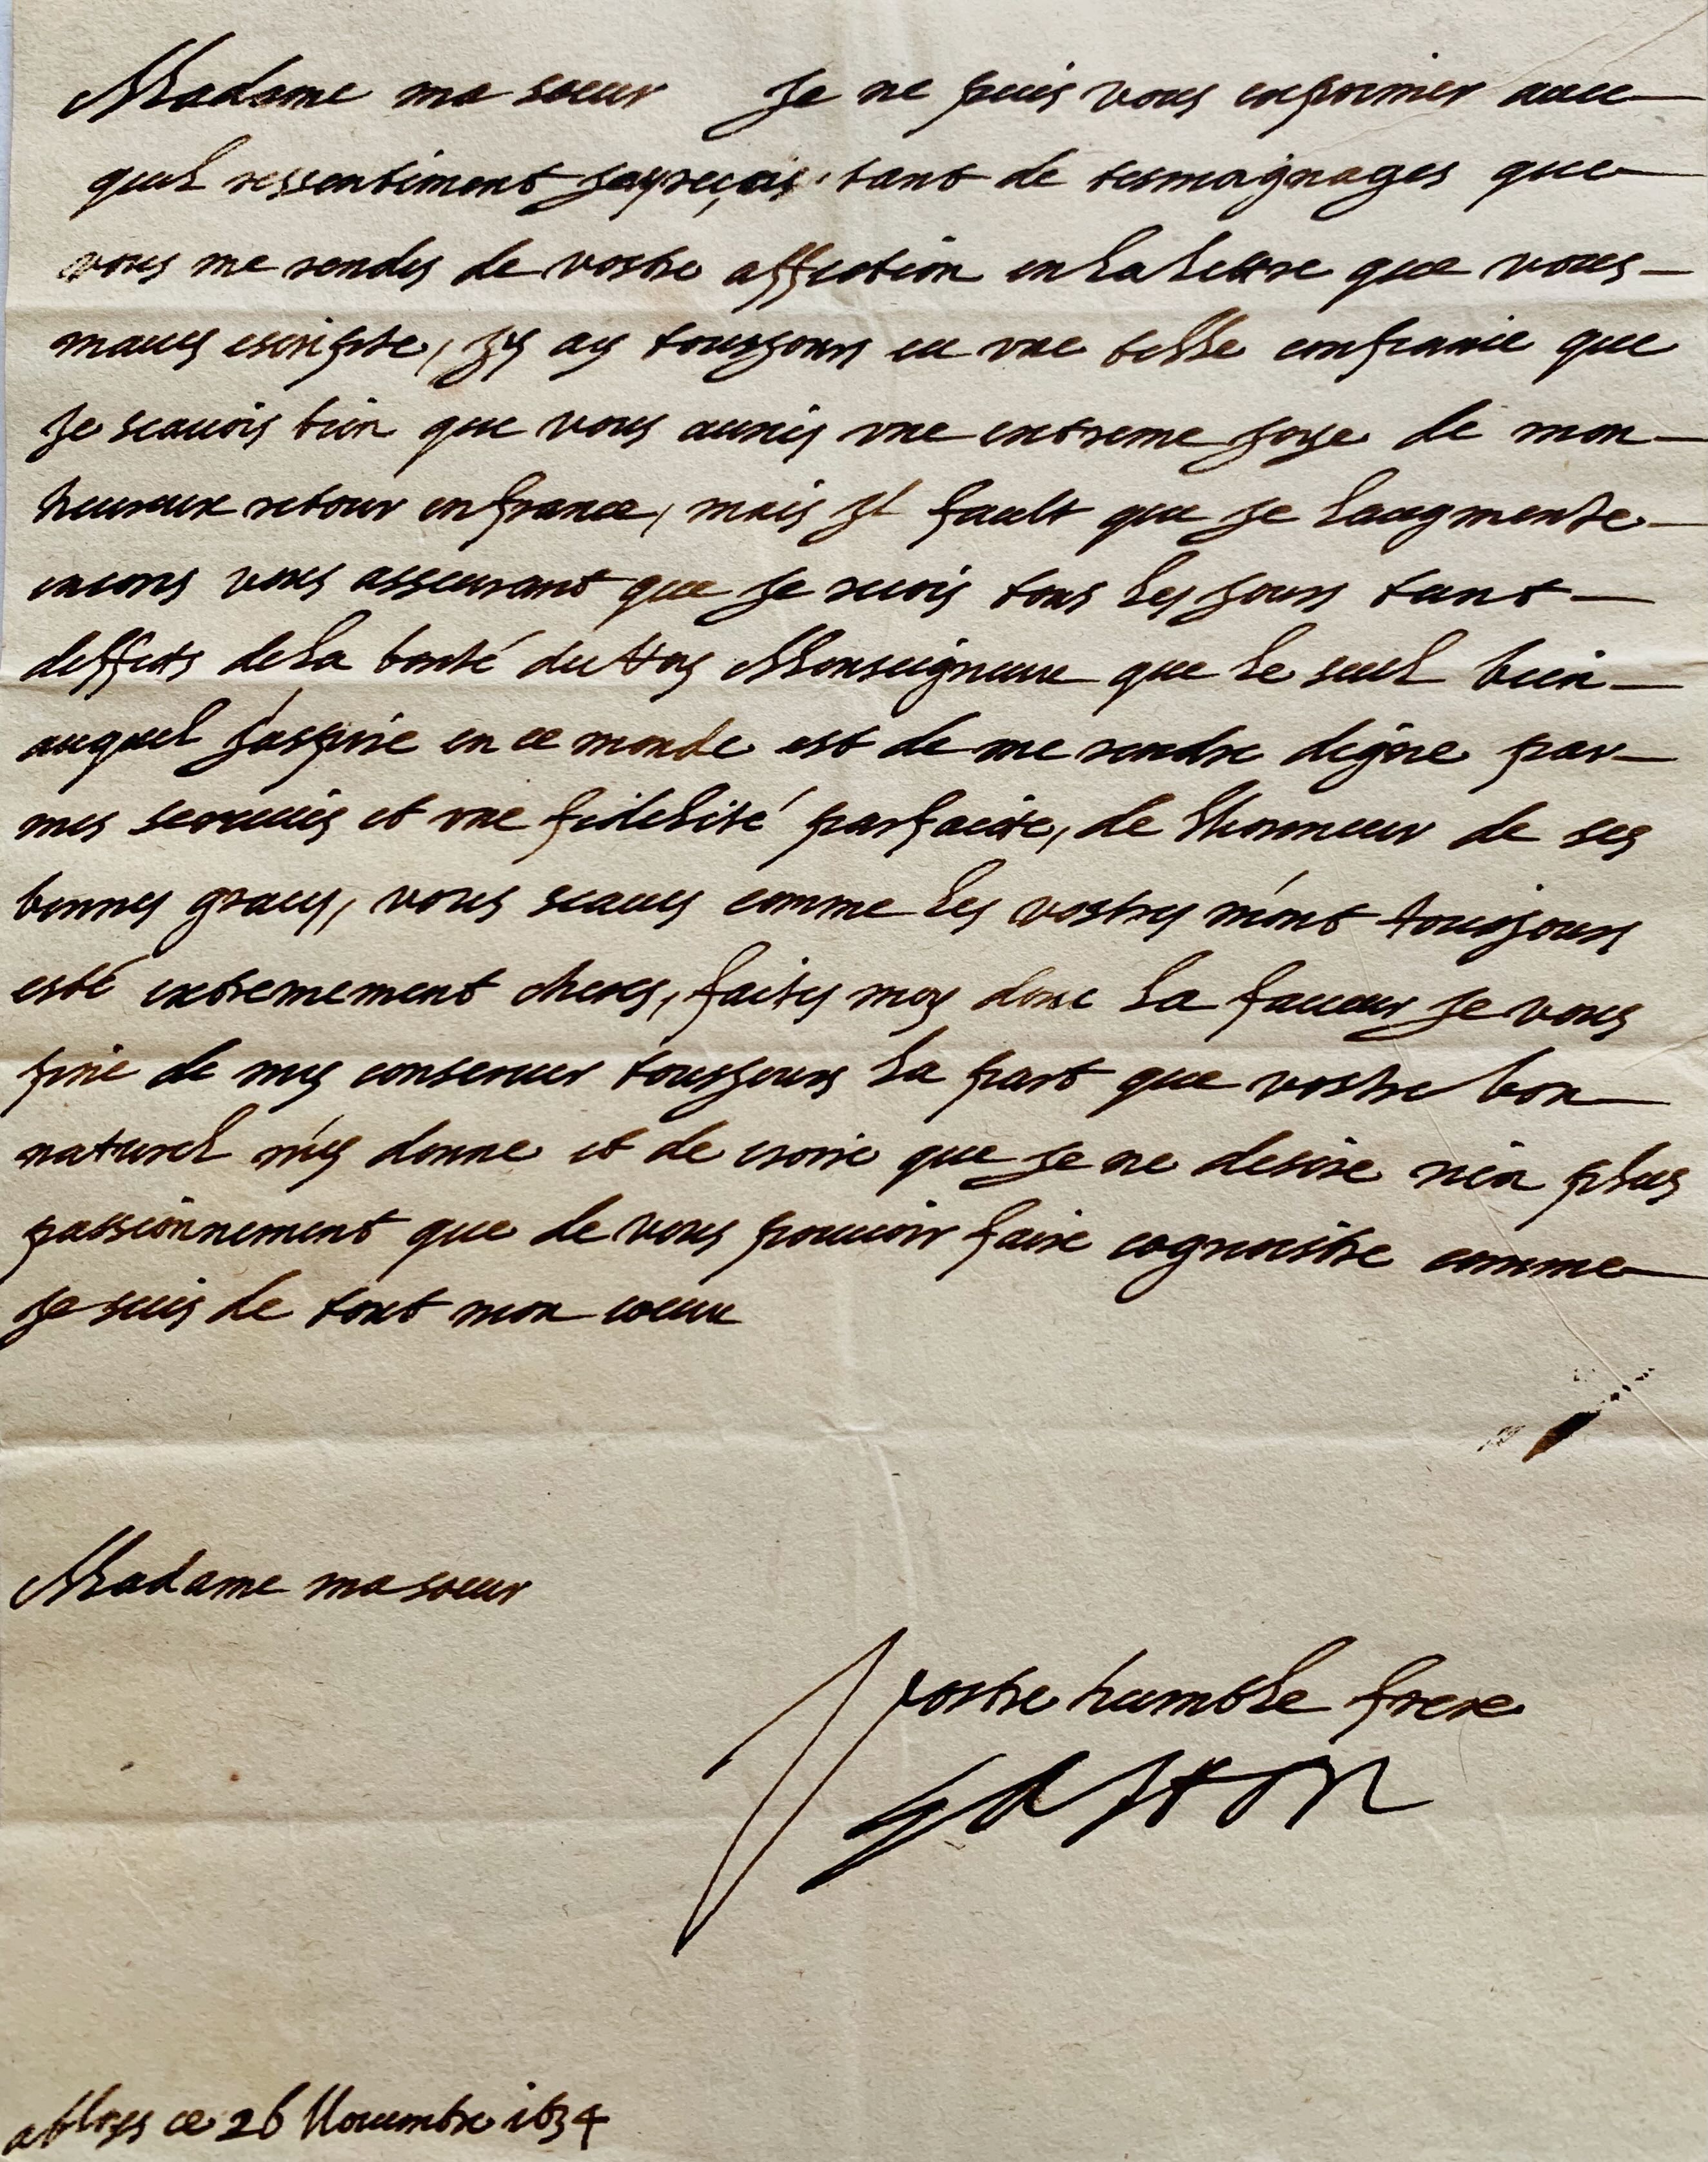 Madame ma soeur Je ne puis vous exprimer auec
quel ressentiment Jay reçois tant de tesmoignages que
vous me rendes de vostre affection en la lettre que vous
maues escripte, Jy ay tousjours eu vne telle confiance que
Je scauois bien que vous auries vne extreme joye de mon
heureux retour en france, mais Jl fault que Je laugmente
encores vous asseurant que Je recois tous les Jours tant
deffects de la bonté du Roy Monseigneur que le seul bien
auquel J'aspire en ce monde est de me rendre digne par
mes seruices et vne fidelité parfaicte, de lhonneur de ses
bonnes graces, vous scaues comme les vostres m'ont tousjours
esté extremement cheres, faites moy donc la faueur Je vous
prie de my conseruer tousjours la part que vostre bon
naturel m'y donne et de croire que Je ne desire rien plus
passionnement que de vous pouuoir faire cognoistre comme
Je suis de tout mon coeur
Madame ma soeur
vostre humble frere
Gaston
a bloys ce 26 Nouembre 1634